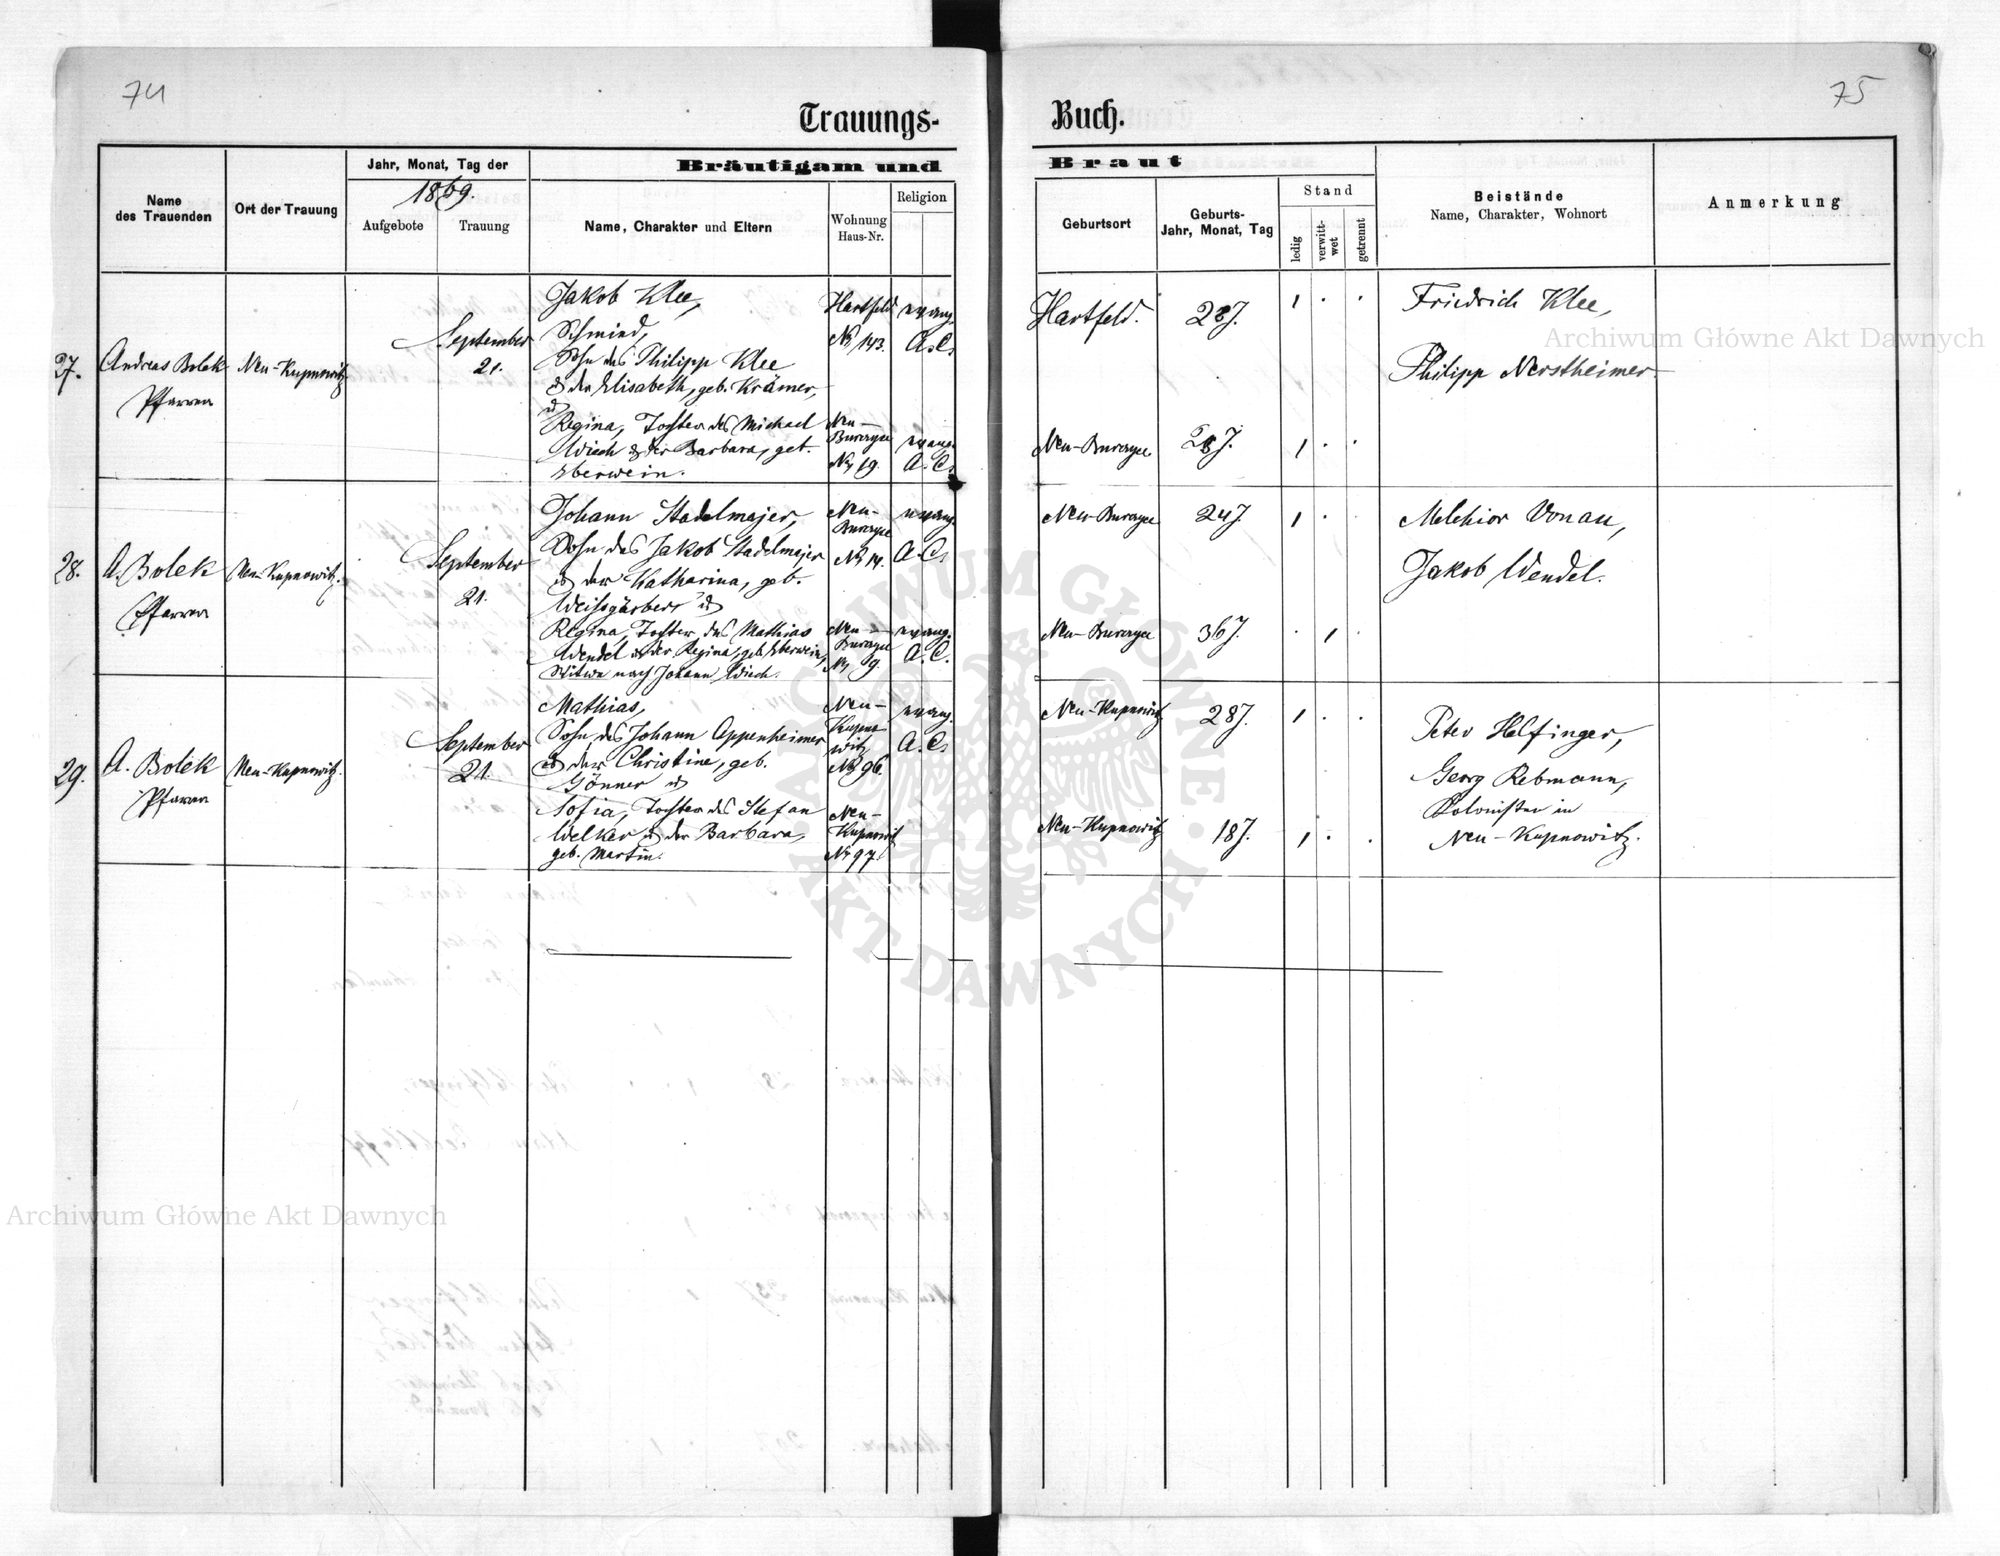 74
75
Trauungs-
Buch.
Bräutigam und
Braut
Jahr, Monat, Tag der
1869.
Name
des Trauenden
Ort der Trauung
Aufgebote
Trauung
Name, Charakter und Eltern
Wohnung
Haus-Nr.
Religion
Geburtsort
Geburts-
Jahr, Monat, Tag
Stand
ledig
verwitt-
wet
getrennt
Beistände
Name, Charakter, Wohnort
Anmerkung
27.
Andreas Bolek
Pfarrer
Neu-Kupnowitz
September
21.
Jakob Klee,
Schmied,
Sohn des Philipp Klee
& der Elisabeth, geb. Krämer,
&
Regina, Tochter des Michael
Wiech & der Barbara, geb.
Eberwein.
Hartfeld
Nr 143.
evang.
A.C.
Neu-
Burczyce
Nr 19.
evang.
A.C.
Hartfeld.
28J.
1 . .
Neu-Burczyce
28J.
1 . .
Friedrich Klee,
Philipp Nerstheimer.
28.
A. Bolek
Pfarrer
Neu-Kupnowitz.
September
21.
Johann Stadelmajer,
Sohn des Jakob Stadelmajer
& der Katharina, geb.
Weissgärber &
Regina, Tochter des Mathias
Wendel & der Regina, geb. Eberwein,
Witwe nach Johann Wiech.
Neu-
Burczyce
Nr 14.
evang.
A.C.
Neu-
Burczyce
Nr 9.
evang.
A.C.
Neu-Burczyce
24J.
1 . .
Neu-Burczyce
36J.
. 1 .
Melchior Vonau,
Jakob Wendel.
29.
A. Bolek
Pfarrer
Neu-Kupnowitz.
September
21.
Mathias,
Sohn des Johann Appenheimer
& der Christine, geb.
Gönner &
Sofia, Tochter des Stefan
Welker & der Barbara,
geb. Martin.
Neu-
Kupno
witz
Nr 96.
evang.
A.C.
Neu-
Kupnowitz
Nr 97.
Neu-Kupnowitz
28J.
1 . .
Neu-Kupnowitz
18J.
1 . .
Peter Helfinger,
Georg Rebmann,
Kolonisten in
Neu-Kupnowitz.
Archiwum Główne Akt Dawnych
Archiwum Główne Akt Dawnych
ARCHIWUM GŁÓWNE AKT DAWNYCH